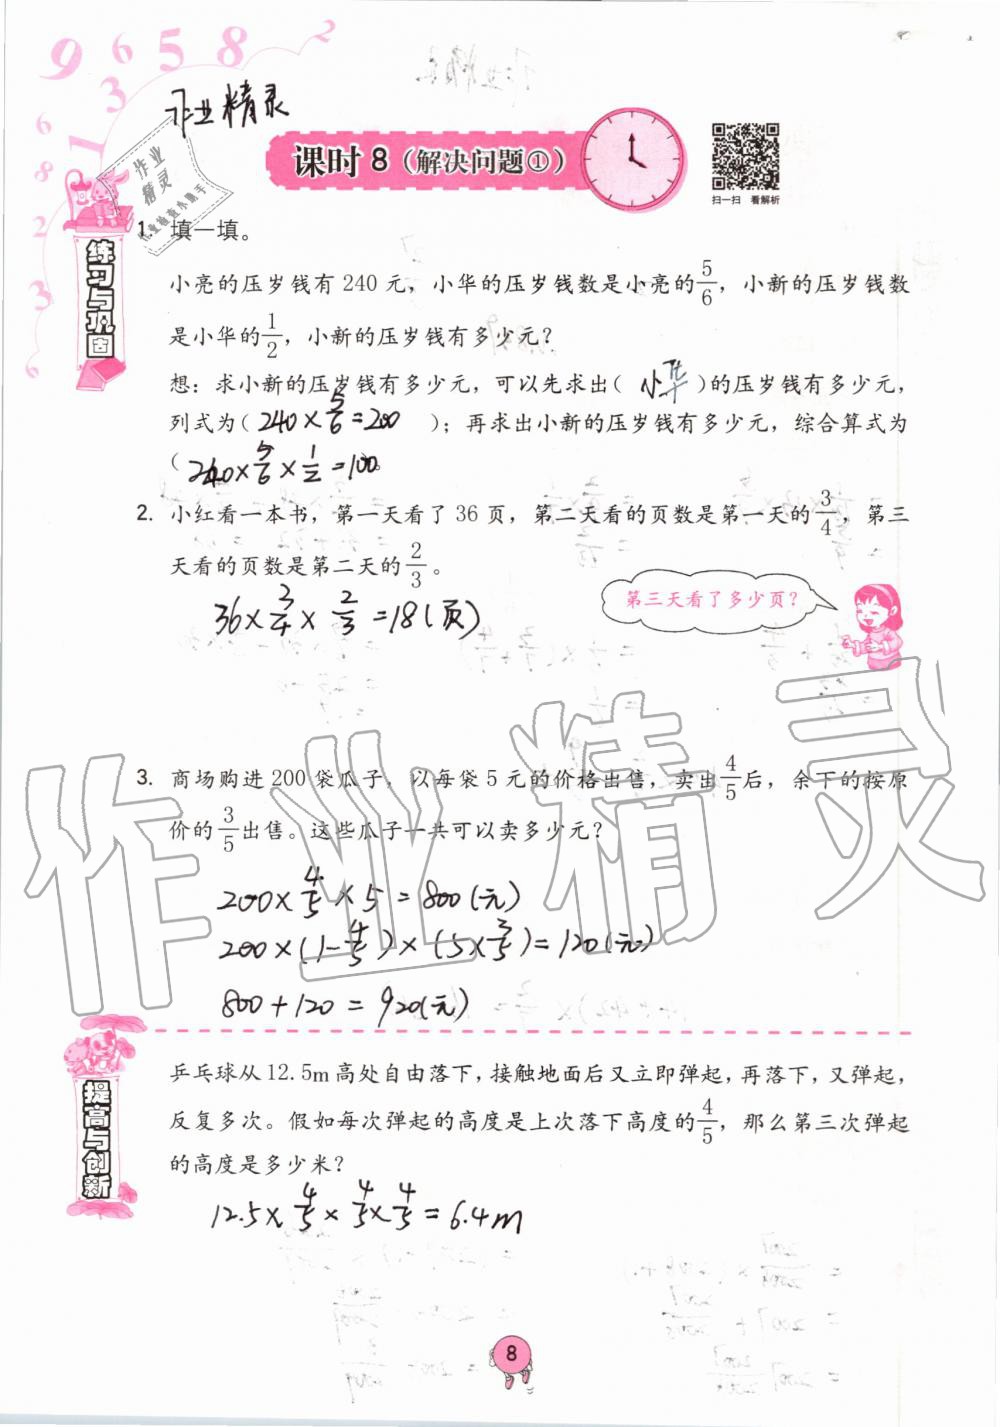 作业精灵
课时 8（解决问题①）
扫一扫 看解析
练习与巩固
1. 填一填。
小亮的压岁钱有 240 元，小华的压岁钱数是小亮的5/6，小新的压岁钱数
是小华的1/2，小新的压岁钱有多少元？
想：求小新的压岁钱有多少元，可以先求出（ 小华 ）的压岁钱有多少元，
列式为（ 240×5/6=200 ）；再求出小新的压岁钱有多少元，综合算式为
（ 240×5/6×1/2=100。
2. 小红看一本书，第一天看了 36 页，第二天看的页数是第一天的3/4，第三
天看的页数是第二天的2/3。
第三天看了多少页？
36×3/4×2/3=18(页)
3. 商场购进 200 袋瓜子，以每袋 5 元的价格出售，卖出4/5后，余下的按原
价的3/5出售。这些瓜子一共可以卖多少元？
200×4/5×5=800(元)
200×(1-4/5)×(5×3/5)=120(元)
800+120=920(元)
提高与创新
乒乓球从 12.5m 高处自由落下，接触地面后又立即弹起，再落下，又弹起，
反复多次。假如每次弹起的高度是上次落下高度的4/5，那么第三次弹起
的高度是多少米？
12.5×4/5×4/5×4/5=6.4m
8
作业精灵